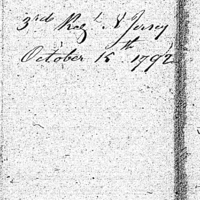 3rd Regt N Jersey
October 15th 1792